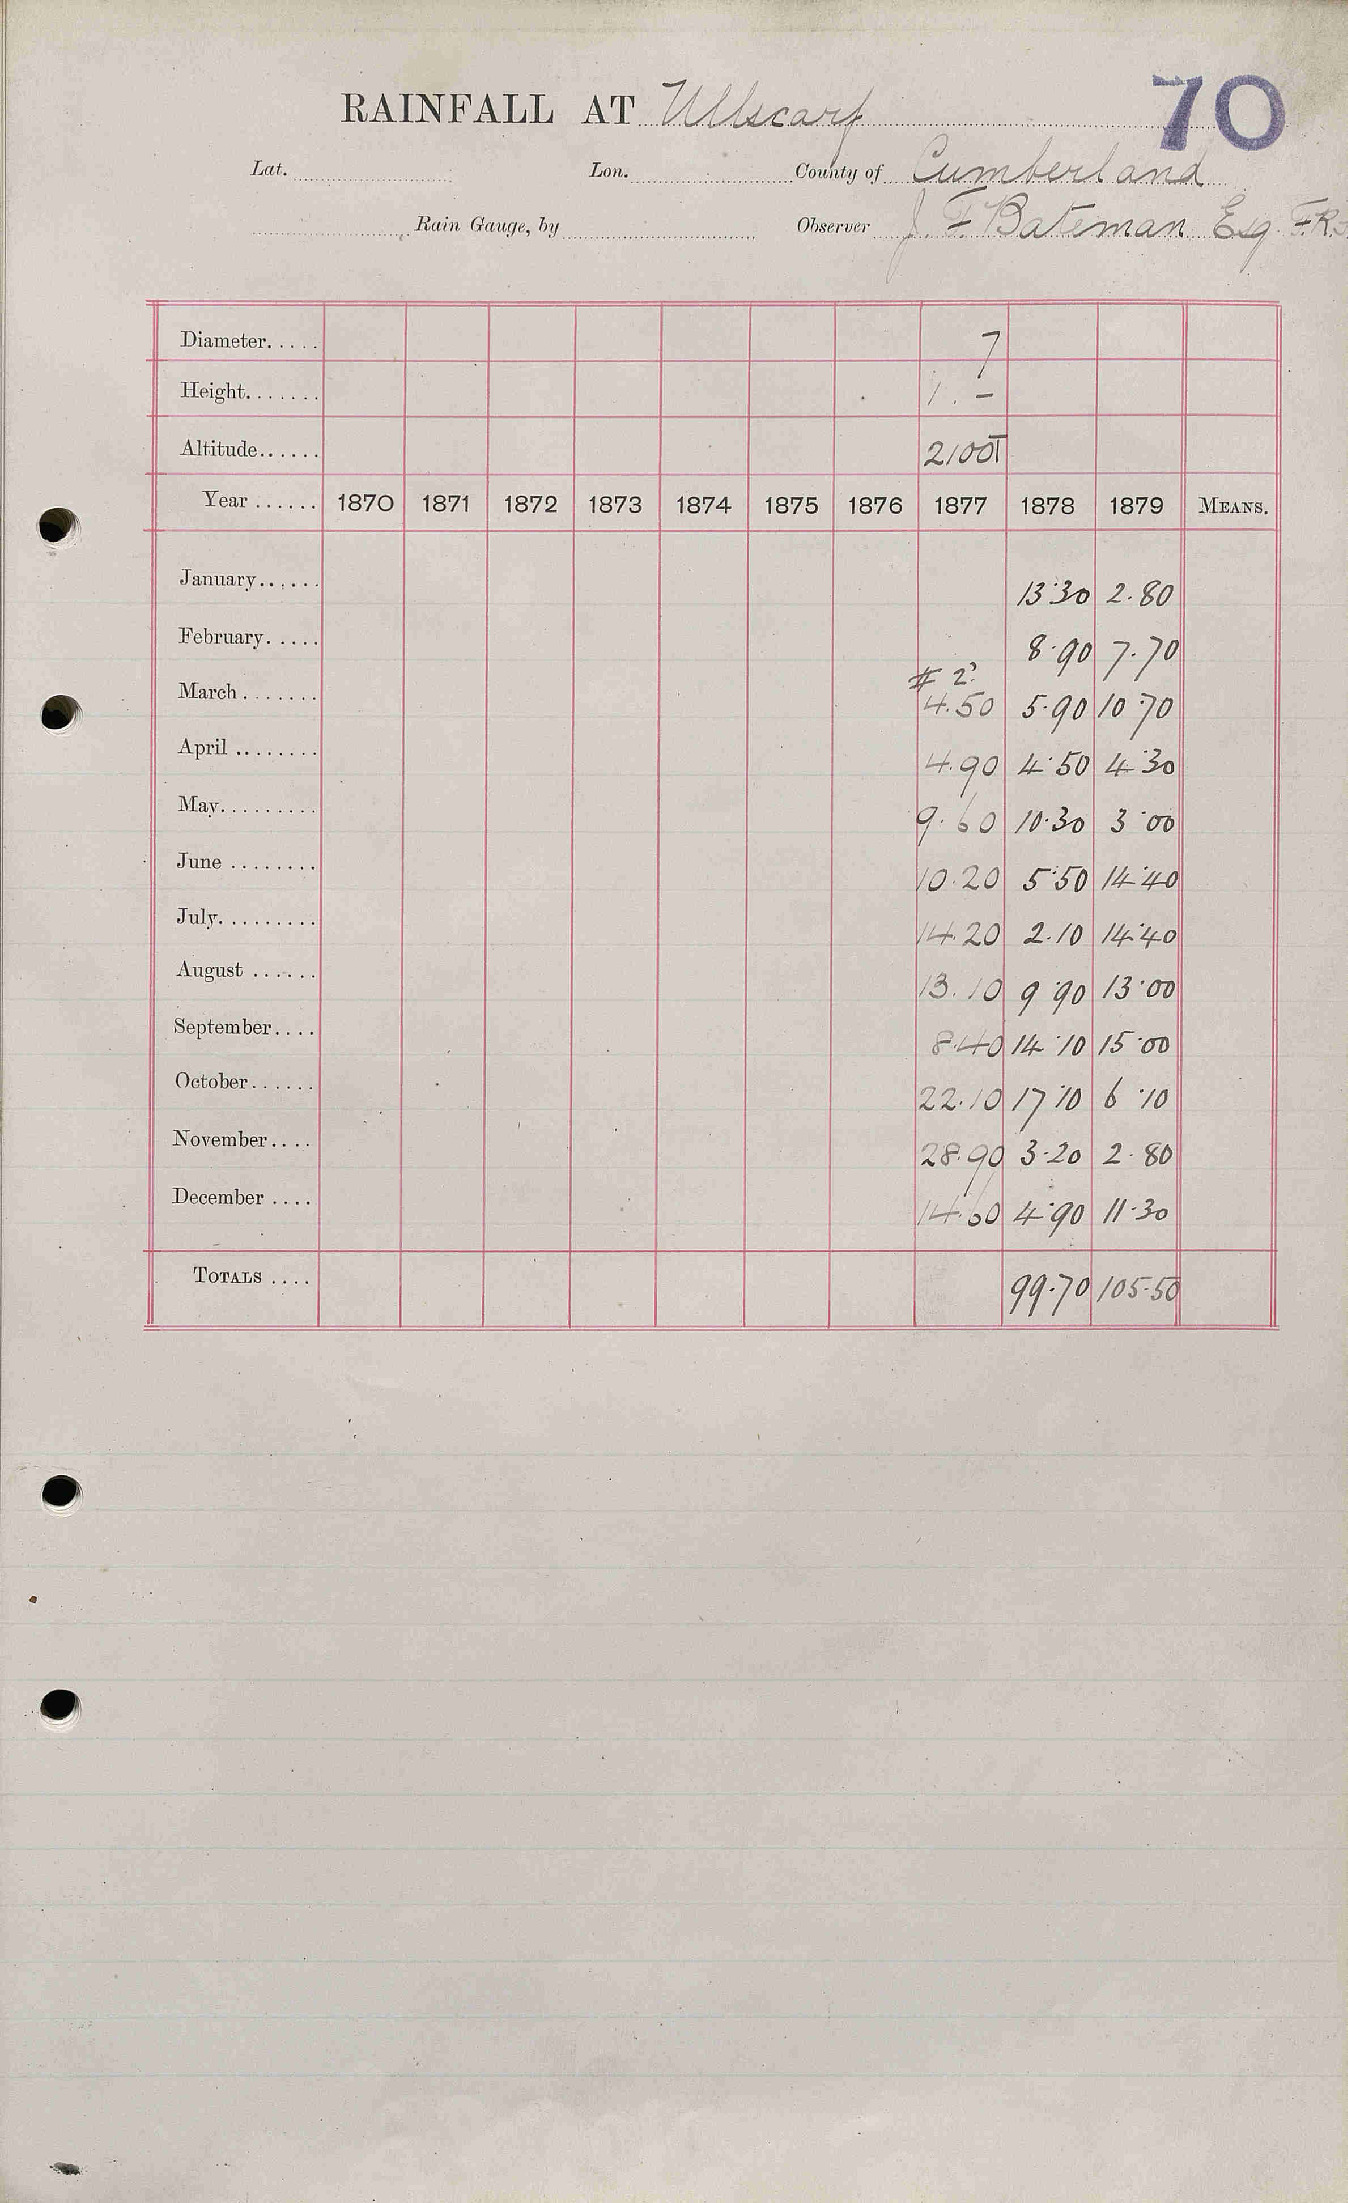 70
RAINFALL AT Ullscarf
Lat. Lon. County of Cumberland
Rain Gauge, by Observer J. F. Bateman Esq. F.R.S.
Diameter..... 7
Height....... 1. –
Altitude...... 2100T
Year ...... 1870 1871 1872 1873 1874 1875 1876 1877 1878 1879 MEANS.
January...... 13·30 2·80
February..... 8·90 7·70
# 2?
March....... 4.50 5·90 10·70
April ........ 4.90 4·50 4·30
May......... 9.60 10·30 3·00
June ........ 10.20 5·50 14·40
July......... 14.20 2·10 14·40
August ...... 13.10 9·90 13·00
September.... 8.40 14·10 15·00
October...... 22.10 17·10 6·10
November.... 28.90 3·20 2·80
December .... 14.60 4·90 11·30
TOTALS .... 99·70 105·50